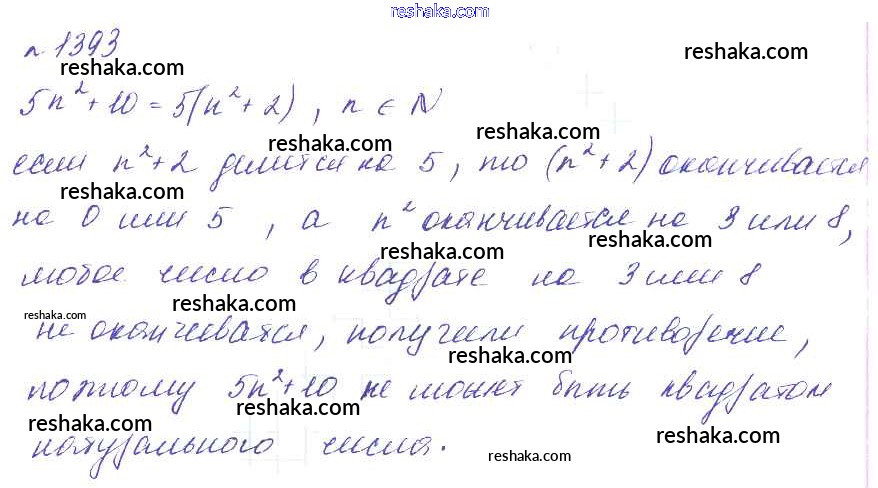 reshaka.com
n 1393
reshaka.com reshaka.com
5n² + 10 = 5(n² + 2), n ∈ N
reshaka.com reshaka.com
если n² + 2 делится на 5, то (n² + 2) оканчивается
reshaka.com reshaka.com
на 0 или 5, а n² оканчивается на 3 или 8,
reshaka.com reshaka.com
любое число в квадрате на 3 или 8
reshaka.com reshaka.com reshaka.com
не оканчивается, получили противоречие,
reshaka.com
поэтому 5n² + 10 не может быть квадратом
reshaka.com reshaka.com reshaka.com
натурального числа.
reshaka.com reshaka.com